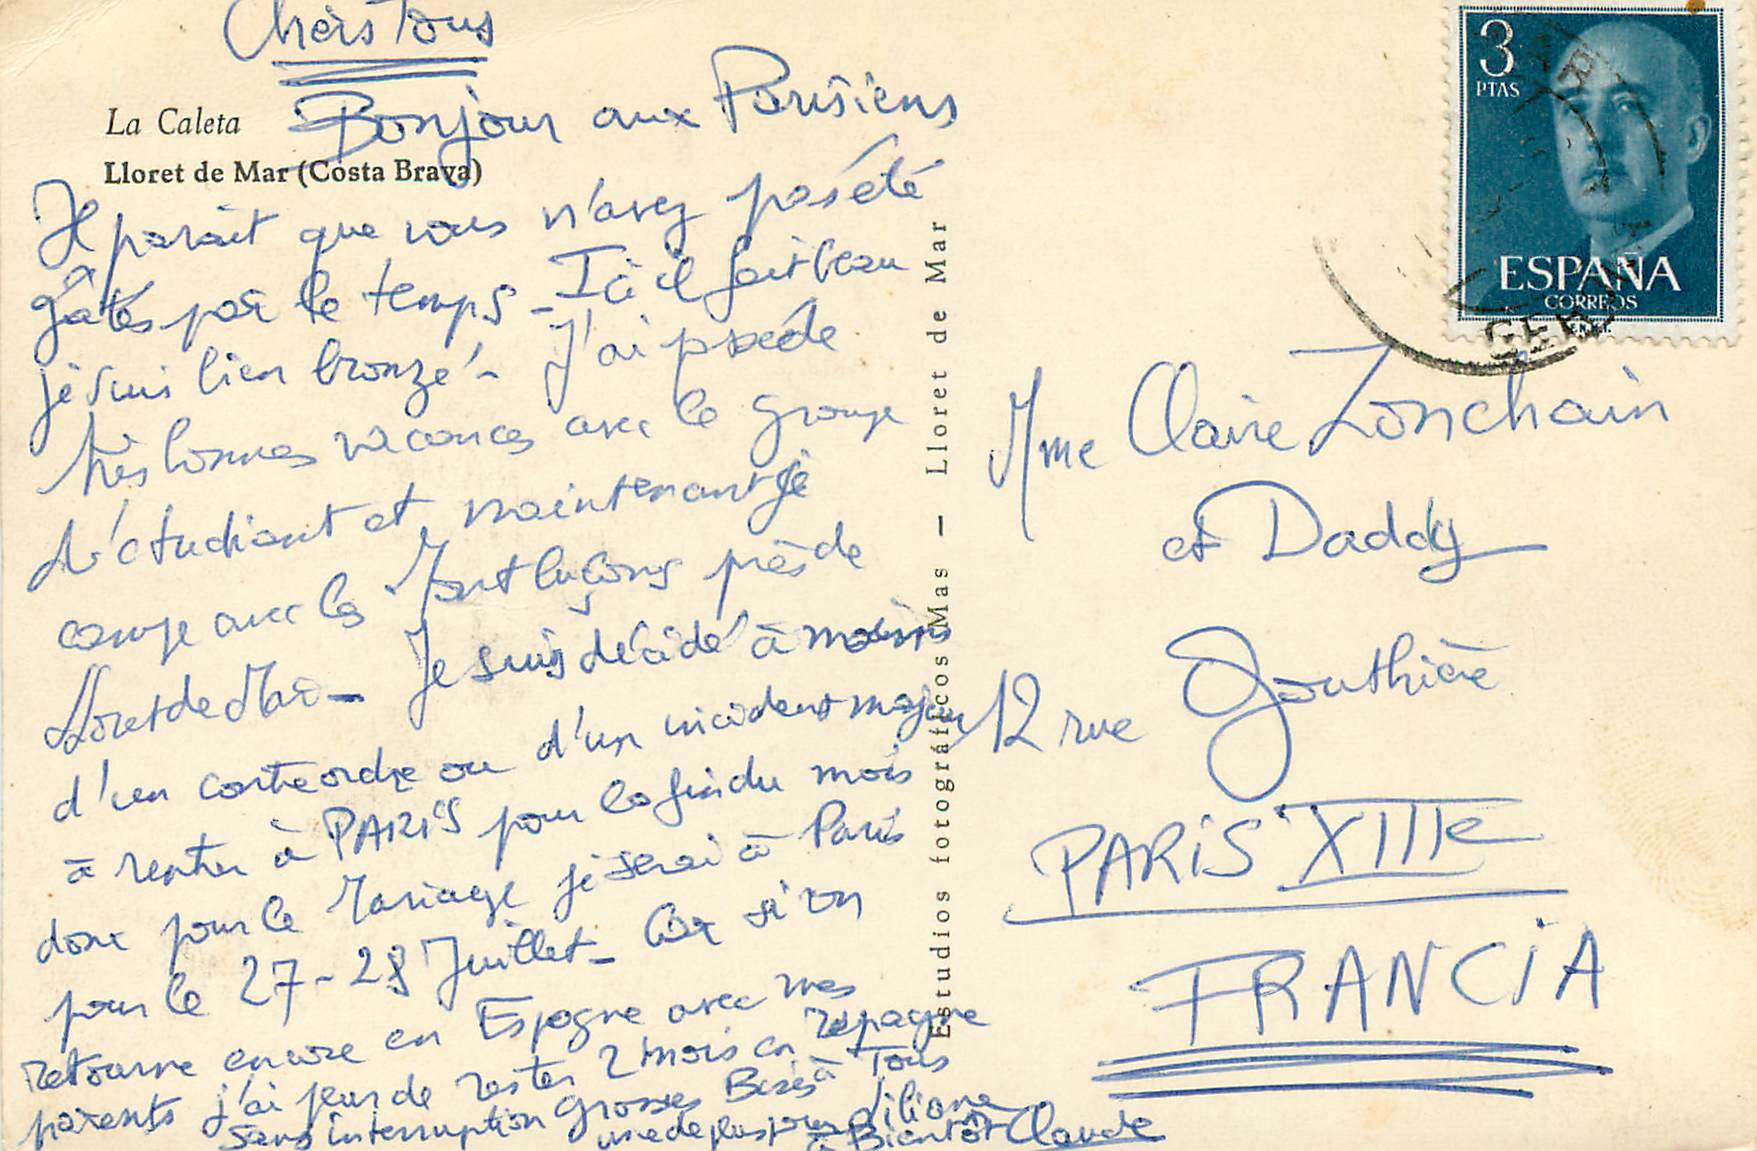 Chers Tous
La Caleta
Bonjour aux Parisiens
Lloret de Mar (Costa Brava)
Il parait que vous n'avez pas été
gâtés par le temps - Ici il fait beau
je suis bien bronzé - J'ai passé de
très bonnes vacances avec le groupe
d'étudiant et maintenant je
campe avec les Montluçons près de
Lloret de Mar - Je suis décidé à moins
d'un contre ordre ou d'un incident majeur
à rentrer à PARIS pour la fin du mois
donc pour le Mariage je serai à Paris
pour le 27-28 Juillet - Car si on
retourne encore en Espagne avec mes
parents j'ai peur de rester 2 mois en Espagne
sans interruption Grosses Bises à Tous
une de plus pour Liliane
à Bientôt Claude
Estudios fotográficos Mas — Lloret de Mar
3
PTAS
ESPAÑA
CORREOS
Mme Claire Lonchain
et Daddy
12 rue Gouthière
PARIS XIIIe
FRANCIA